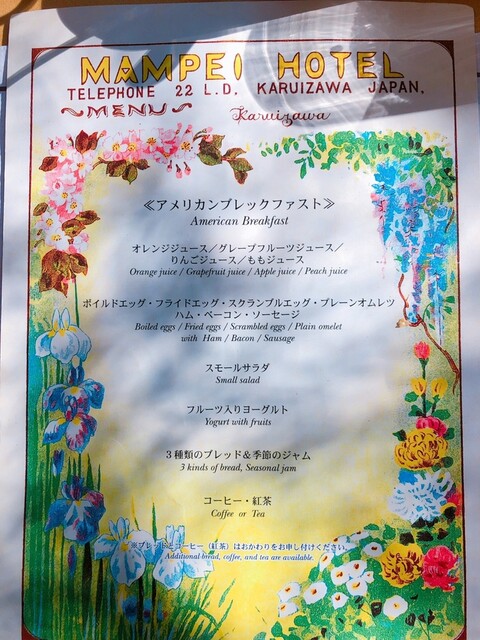 MAMPEI HOTEL
TELEPHONE 22 L.D. KARUIZAWA JAPAN.
~MENU~
Karuizawa
≪アメリカンブレックファスト≫
American Breakfast
オレンジジュース／グレープフルーツジュース／
りんごジュース／ももジュース
Orange juice / Grapefruit juice / Apple juice / Peach juice
ボイルドエッグ・フライドエッグ・スクランブルエッグ・プレーンオムレツ
ハム・ベーコン・ソーセージ
Boiled eggs / Fried eggs / Scrambled eggs / Plain omelet
with Ham / Bacon / Sausage
スモールサラダ
Small salad
フルーツ入りヨーグルト
Yogurt with fruits
３種類のブレッド＆季節のジャム
3 kinds of bread, Seasonal jam
コーヒー・紅茶
Coffee or Tea
※ブレッドとコーヒー（紅茶）はおかわりをお申し付けください。
Additional bread, coffee, and tea are available.